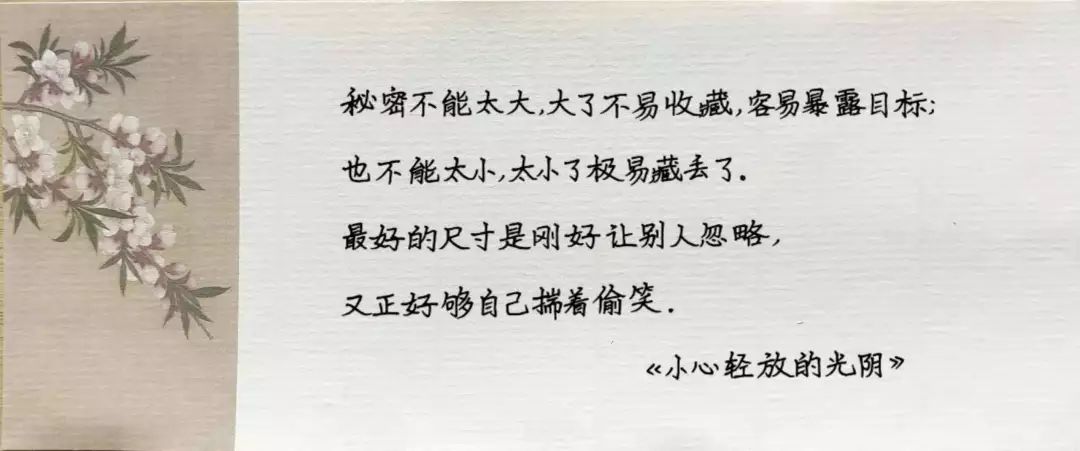 秘密不能太大,大了不易收藏,容易暴露目标;
也不能太小,太小了极易藏丢了.
最好的尺寸是刚好让别人忽略,
又正好够自己揣着偷笑.
《小心轻放的光阴》